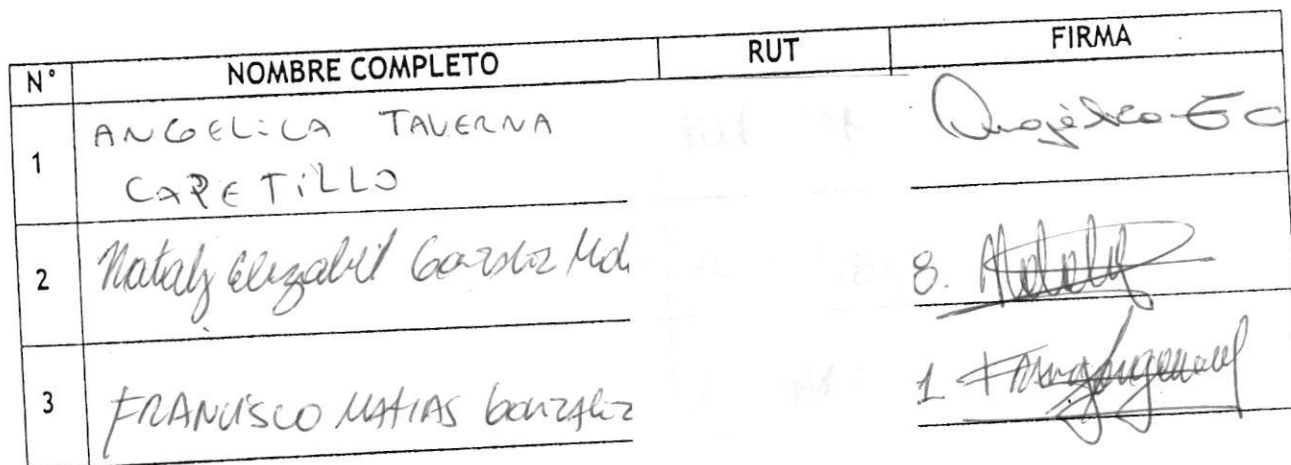 N° NOMBRE COMPLETO RUT FIRMA
1 ANGELICA TAVERNA
CAPETILLO
2 Nataly Elizabet 8.
3 FRANCISCO MATIAS GONZALEZ 1